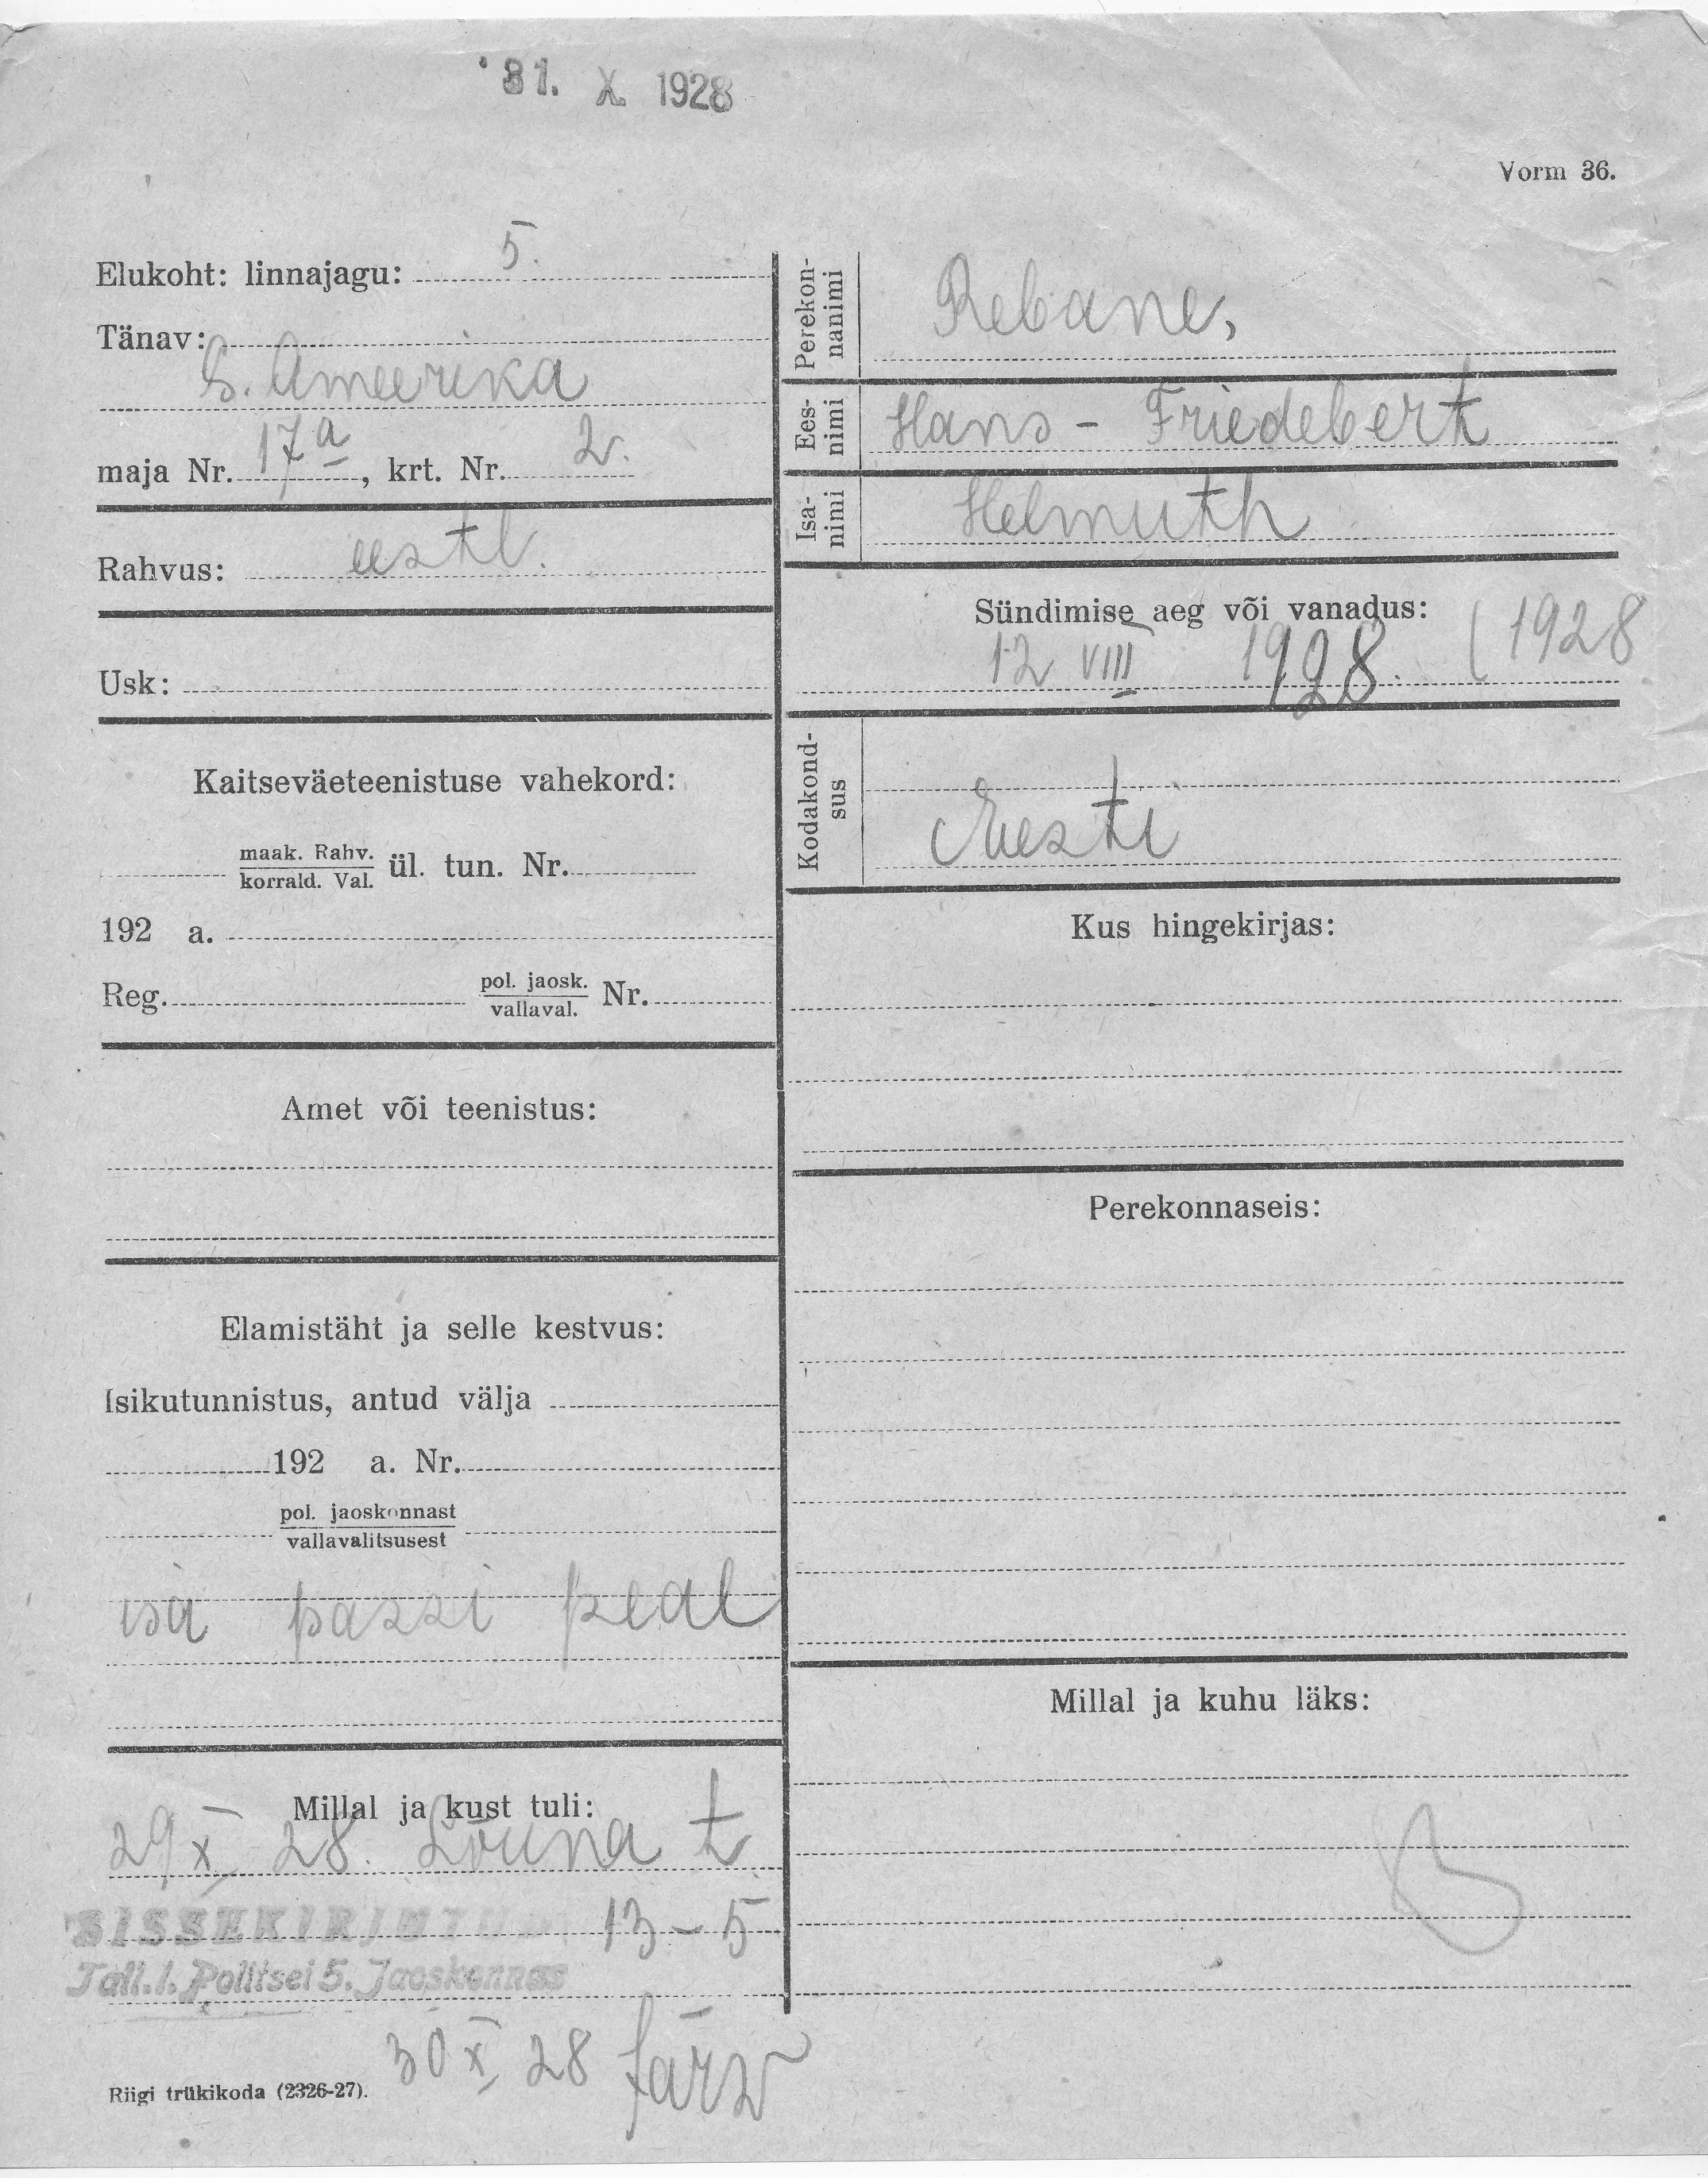 31. X 1928
Vorm 36.
Elukoht: linnajagu: 5.
Tänav:
S. Ameerika
maja Nr. 17a, krt. Nr. 2.
Rahvus: eestl.
Usk:
Kaitseväeteenistuse vahekord:
maak. Rahv.
korrald. Val. ül. tun. Nr.
192 a.
Reg. pol. jaosk. Nr.
vallaval.
Amet või teenistus:
Elamistäht ja selle kestvus:
Isikutunnistus, antud välja
192 a. Nr.
pol. jaoskonnast
vallavalitsusest
isa passi peal
Millal ja kust tuli:
29 X 28. Lõuna t
13-5
SISSEKIRJUTUD
Tall. l. Politsei 5. Jaoskonnas
30 X 28
Riigi trükikoda (2326-27).
Perekon-
nanimi
Rebane,
Ees-
nimi
Hans - Friedebert
Isa-
nimi
Helmuth
Sündimise aeg või vanadus:
12 VIII 1928. (1928
Kodakond-
sus
Eesti
Kus hingekirjas:
Perekonnaseis:
Millal ja kuhu läks: